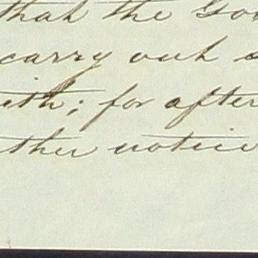 that the Go
carry out
ith; for after
ther notice